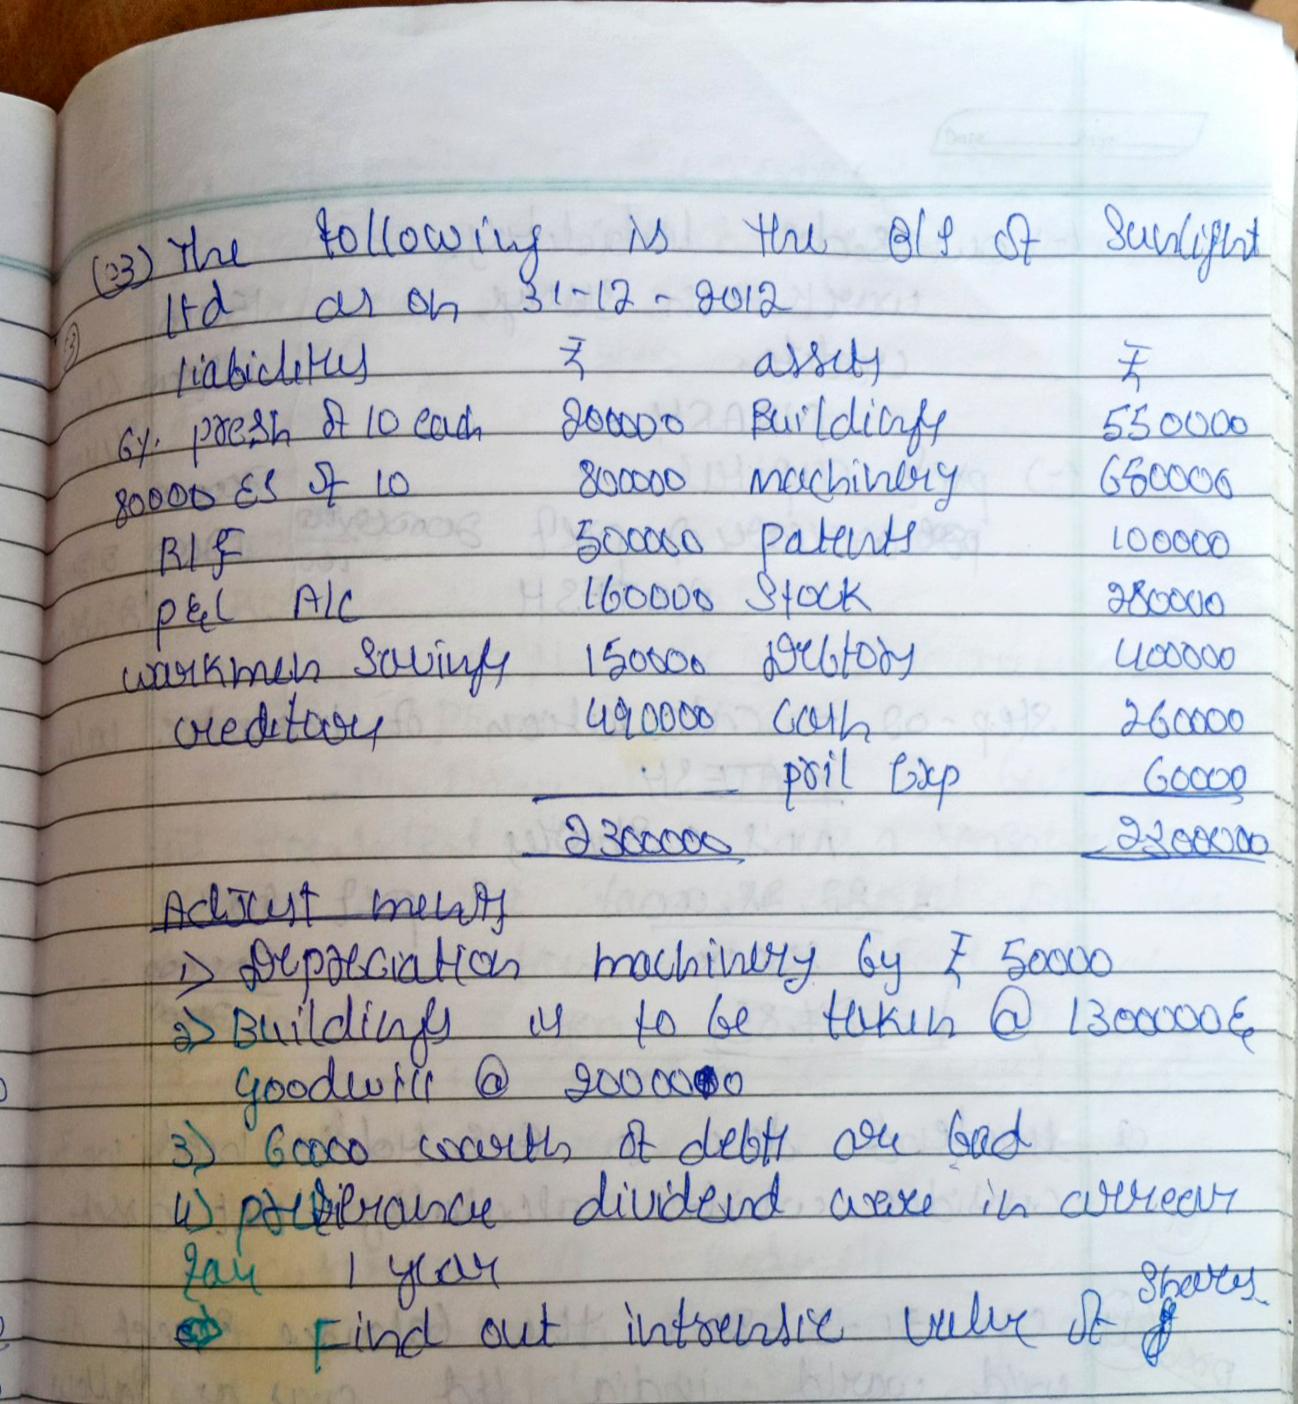 (Q3) The following is the B/S of Sunlight
ltd as on 31-12-2012
liabilities ₹ assets ₹
6% presh of 10 each 200000 Buildings 550000
80000 ES of 10 800000 machinery 650000
R/F 500000 patents 100000
P&L A/C 160000 Stock 280000
workmen Savings 150000 Debtors 400000
creditors 490000 Cash 260000
pril Exp 60000
2300000 2300000
Adjustments
1) Depreciation machinery by ₹ 50000
2) Buildings is to be taken @ 1300000 &
goodwill @ 200000
3) 60000 worth of debts are bad
4) preferance dividend were in arrear
for 1 year
Find out intrensic value of shares